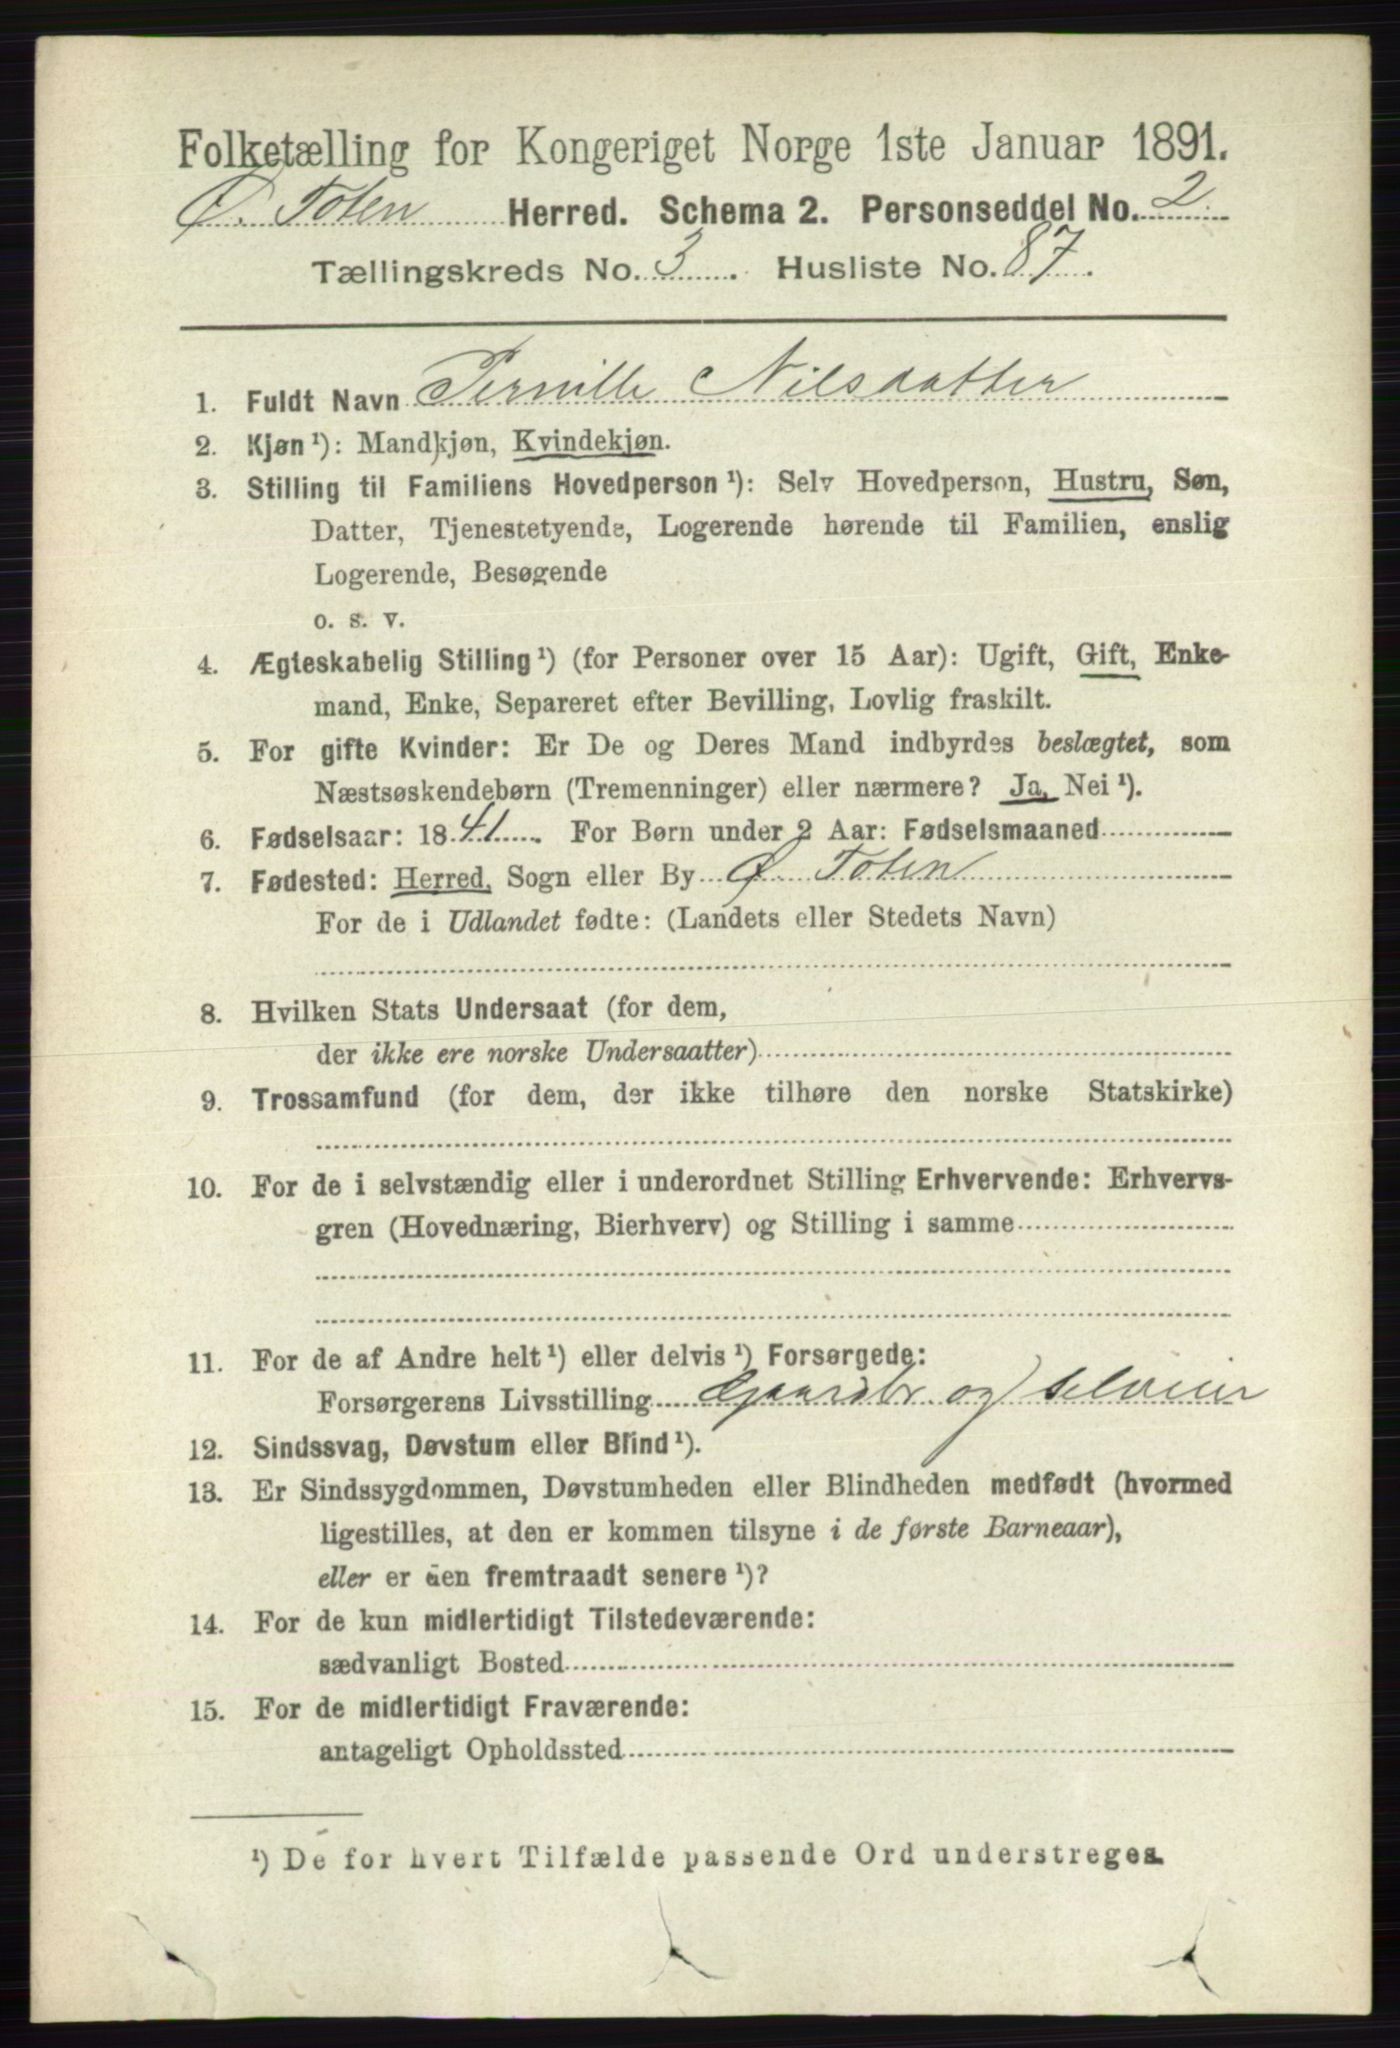 Folketælling for Kongeriget Norge 1ste Januar 1891.
Ø. Toten Herred. Schema 2. Personseddel No. 2
Tællingskreds No. 3. Husliste No. 87.
1. Fuldt Navn Pernille Nilsdatter
2. Kjøn ¹): Mandkjøn, Kvindekjøn.
3. Stilling til Familiens Hovedperson ¹): Selv Hovedperson, Hustru, Søn,
Datter, Tjenestetyende, Logerende hørende til Familien, enslig
Logerende, Besøgende
o. s. v.
4. Ægteskabelig Stilling ¹) (for Personer over 15 Aar): Ugift, Gift, Enke-
mand, Enke, Separeret efter Bevilling, Lovlig fraskilt.
5. For gifte Kvinder: Er De og Deres Mand indbyrdes beslægtet, som
Næstsøskendebørn (Tremenninger) eller nærmere? Ja, Nei ¹).
6. Fødselsaar: 1841. For Børn under 2 Aar: Fødselsmaaned
7. Fødested: Herred, Sogn eller By Ø Toten
For de i Udlandet fødte: (Landets eller Stedets Navn)
8. Hvilken Stats Undersaat (for dem,
der ikke ere norske Undersaatter)
9. Trossamfund (for dem, der ikke tilhøre den norske Statskirke)
10. For de i selvstændig eller i underordnet Stilling Erhvervende: Erhvervs-
gren (Hovednæring, Bierhverv) og Stilling i samme
11. For de af Andre helt ¹) eller delvis ¹) Forsørgede:
Forsørgerens Livsstilling Gaardbr. og selveier
12. Sindssvag, Døvstum eller Blind ¹).
13. Er Sindssygdommen, Døvstumheden eller Blindheden medfødt (hvormed
ligestilles, at den er kommen tilsyne i de første Barneaar),
eller er den fremtraadt senere ¹)?
14. For de kun midlertidigt Tilstedeværende:
sædvanligt Bosted
15. For de midlertidigt Fraværende:
antageligt Opholdssted
¹) De for hvert Tilfælde passende Ord understreges.